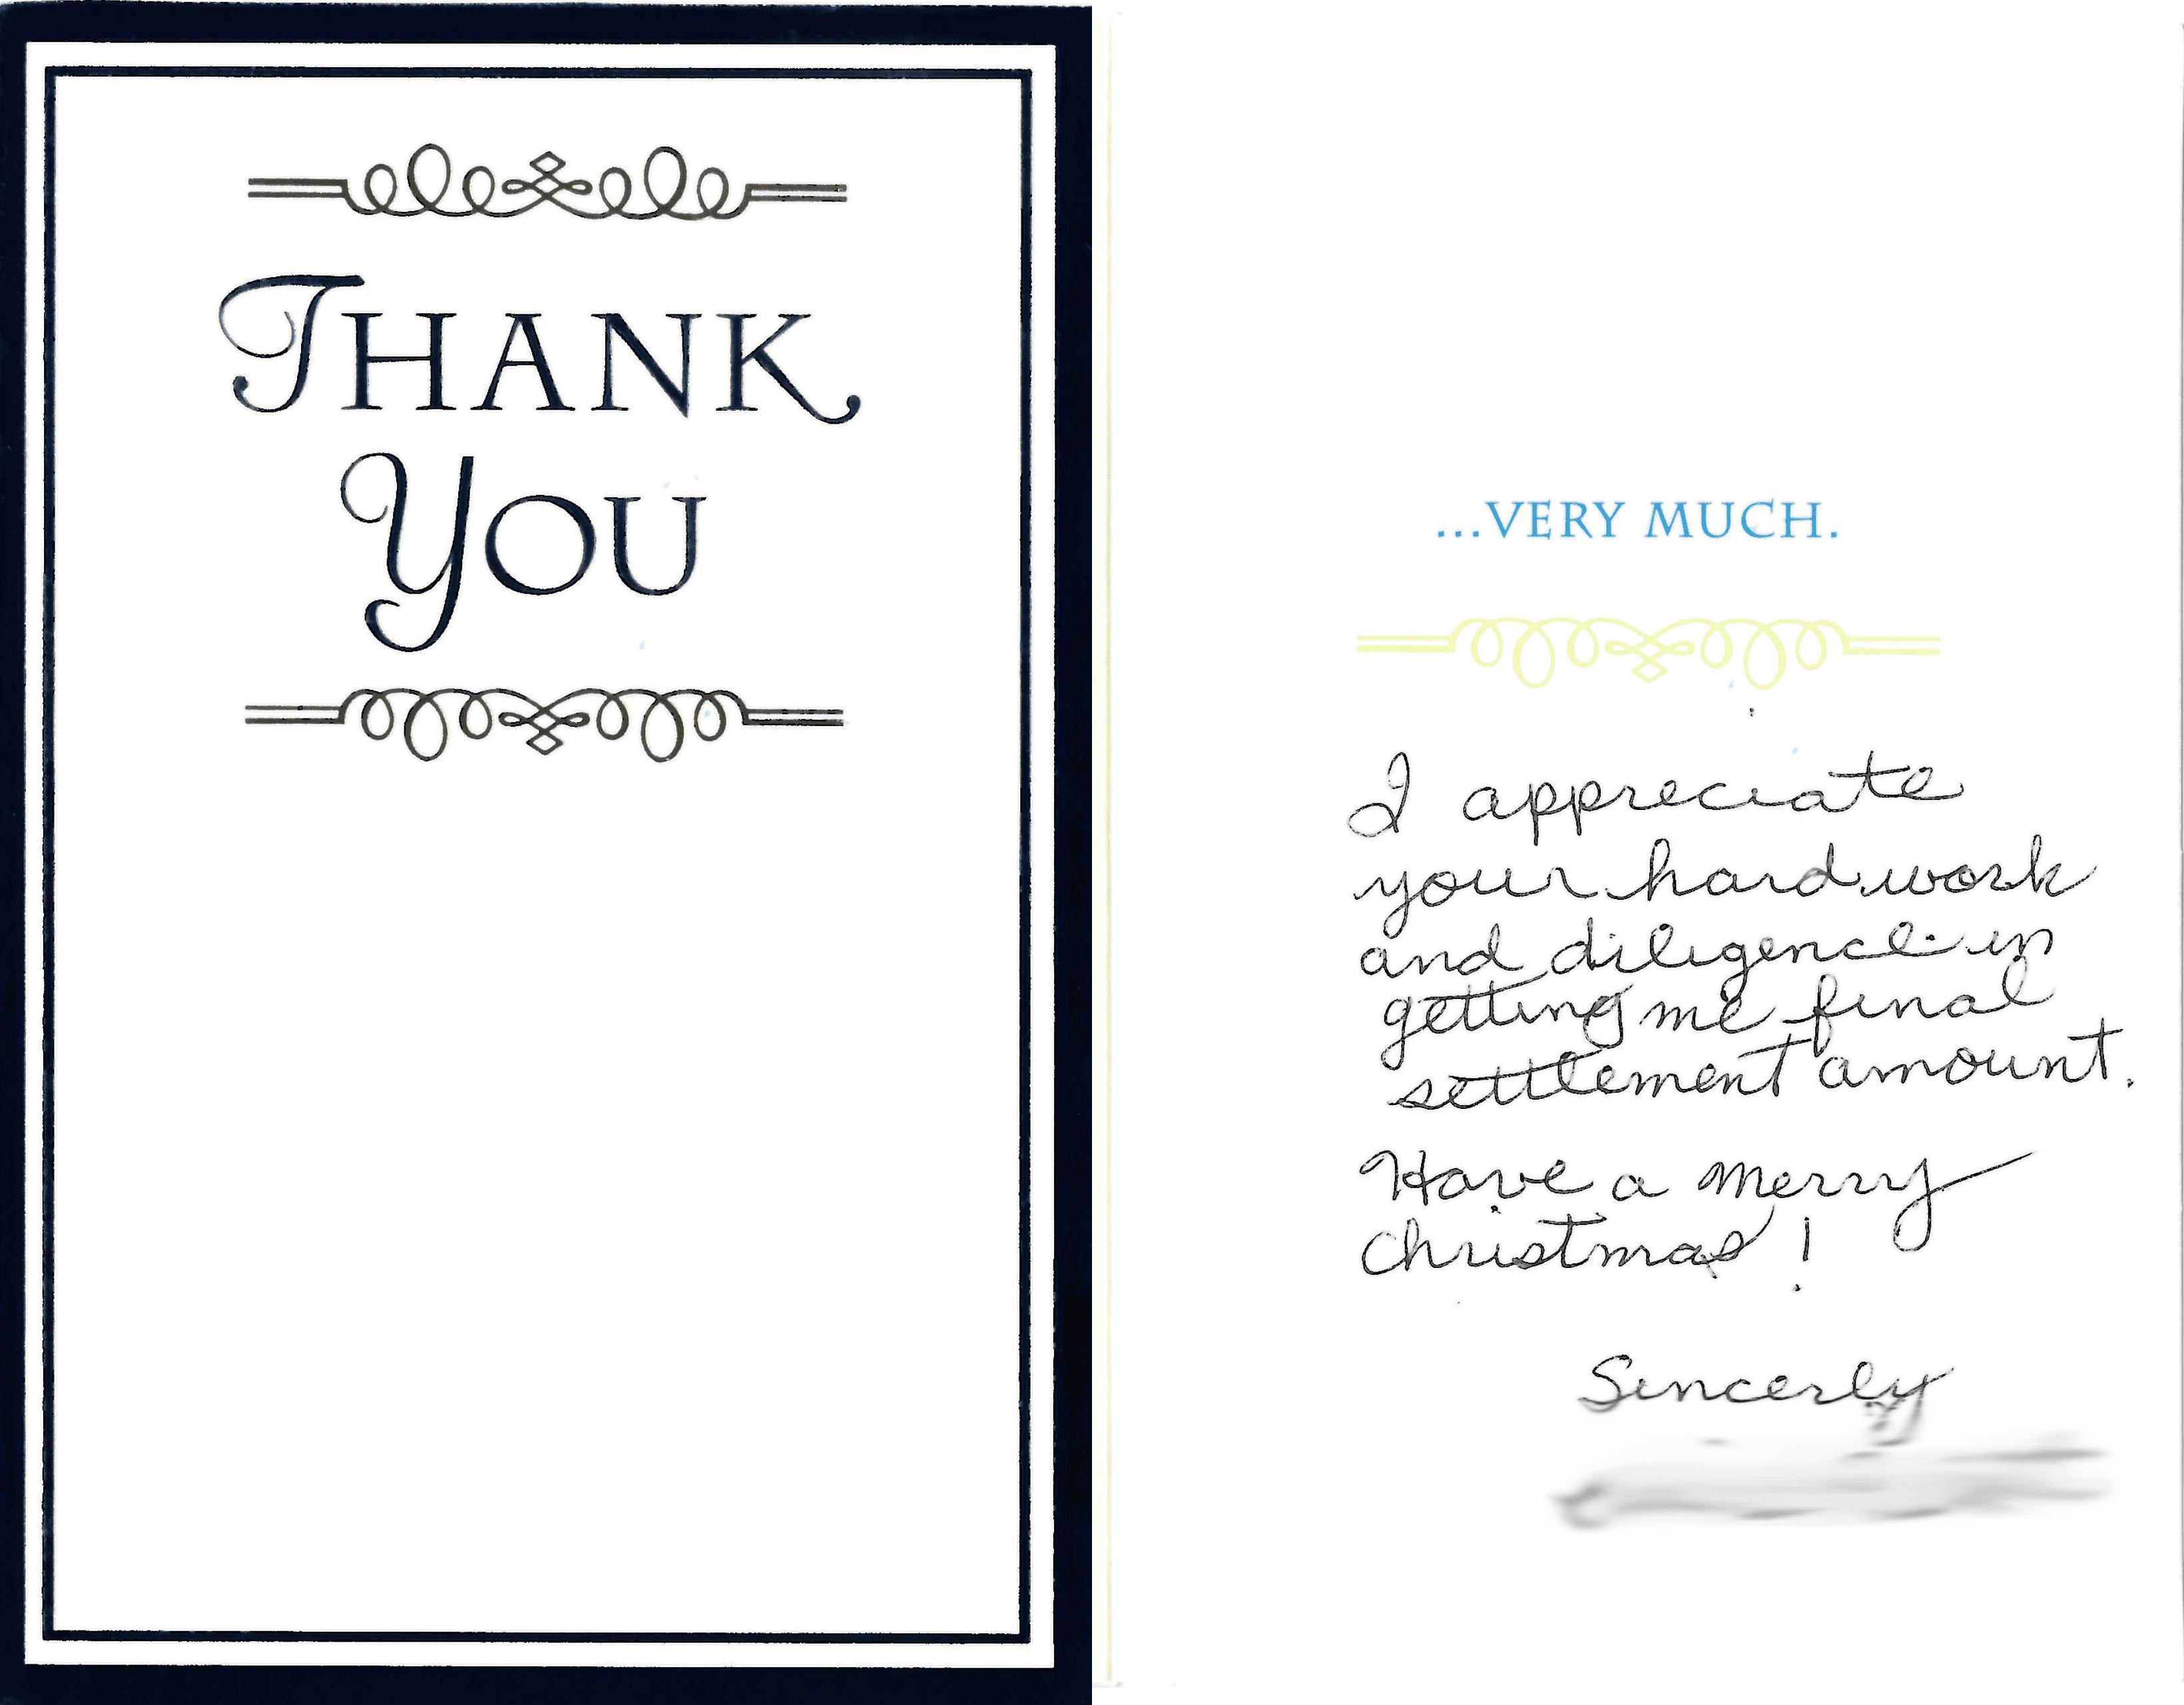 THANK
YOU
...VERY MUCH.
I appreciate
your hard work
and diligence in
getting me final
settlement amount.
Have a merry
Christmas!
Sincerly